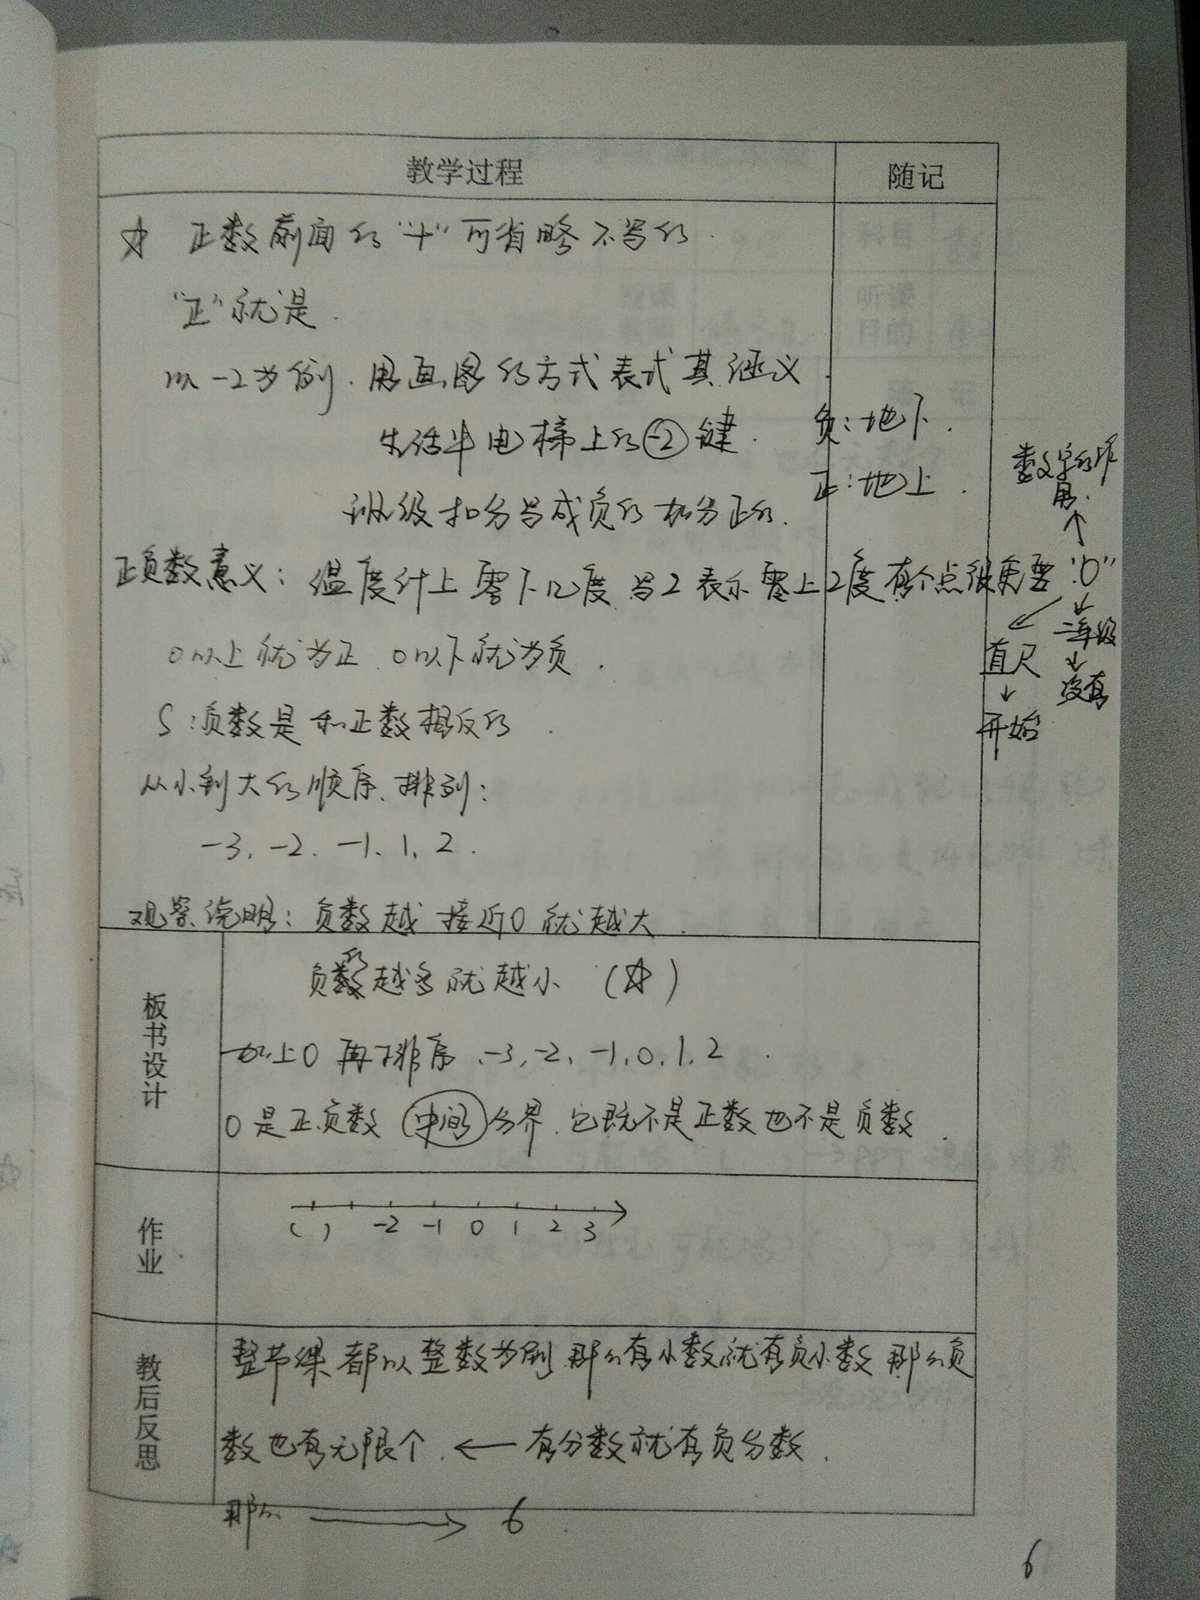 教学过程 随记
☆ 正数前面的“+”可省略不写的.
“正”就是.
以-2为例.用画图的方式表式其涵义.
生活中电梯上的-2键. 负:地下.
正:地上.
班级扣分写成负的 加分正的.
正负数意义: 温度计上 零下几度 写2表示零上2度 有个点很重要 “0”
数字的作用.
直尺
↓
开始
二年级
↓
没有
0以上就为正 0以下就为负.
S:负数是和正数相反的.
从小到大的顺序、排列:
-3、-2、-1、1、2.
观察说明:负数越接近0就越大.
板书设计
负的数越多就越小 (☆)
加上0再排序、-3,-2,-1,0,1,2.
0是正负数中间分界.它既不是正数也不是负数.
作业
( ) -2 -1 0 1 2 3
教后反思
整节课都以整数为例 那么有小数就有负小数 那么负
数也有无限个. ← 有分数就有负分数.
那么 → 6
6